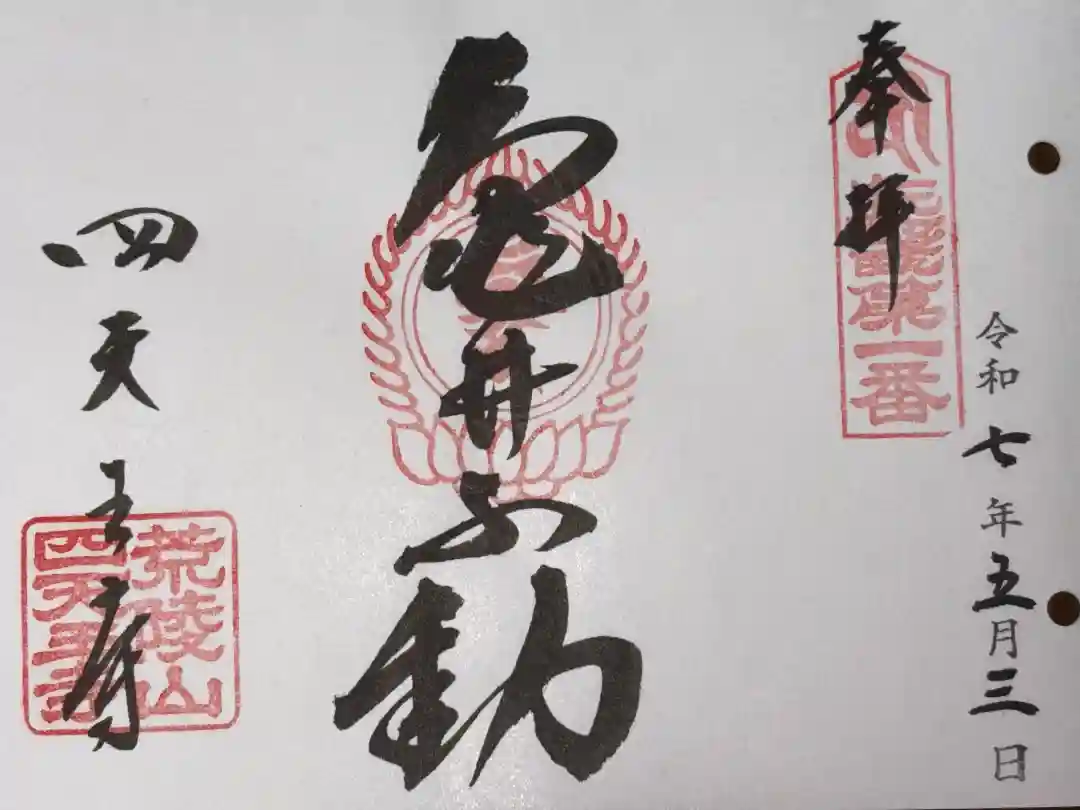 奉拝
第一番
令和七年五月三日
亀井不動
四天王寺
荒陵山
四天王寺